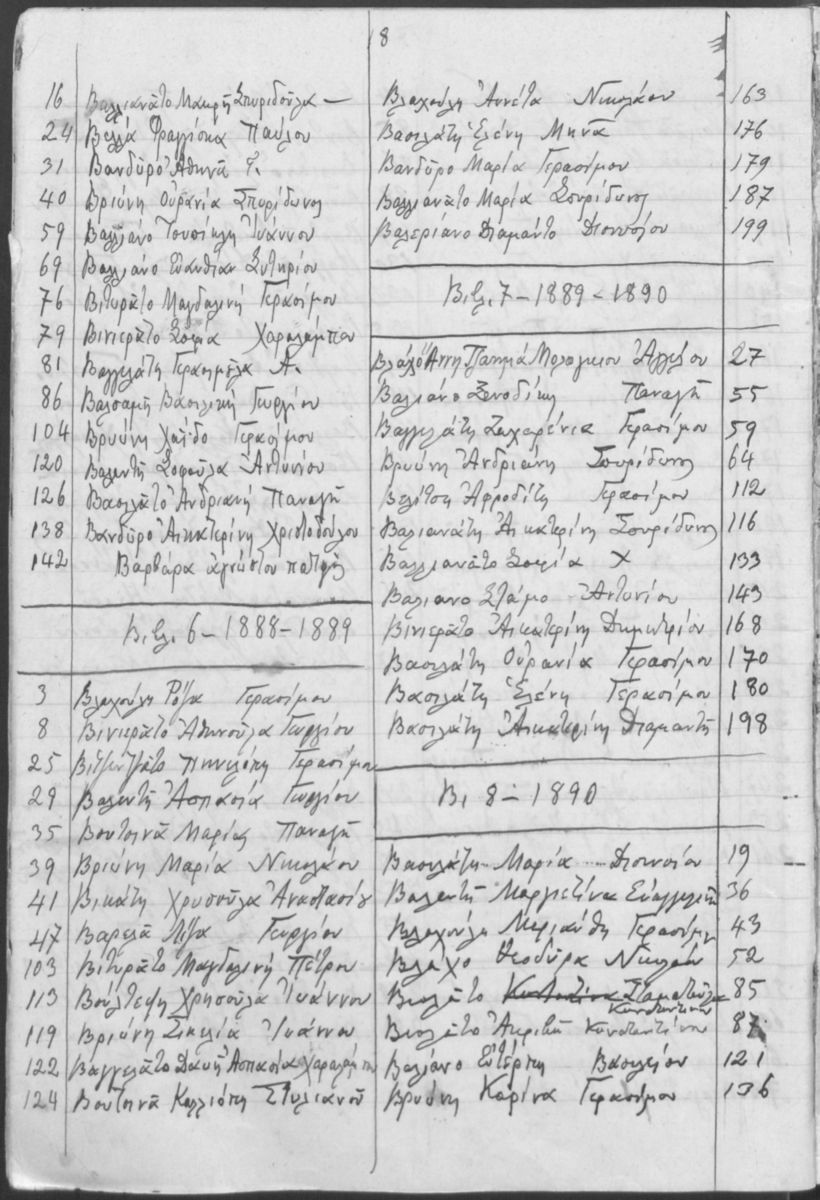 18
16 Βαλλιανᾶτο Μακρῆ Σπυριδοῦλα —
24 Βελλᾶ Φραγγίσκα Παύλου
31 Βανδῶρο Ἀθηνᾶ
40 Βριώνη Οὐρανία Σπυρίδωνος
59 Βαλλιάνο Ἰωάννου
69 Βαλλιάνο Εὐανθία Σωτηρίου
76 Βιτωρᾶτο Μαγδαληνή Γερασίμου
79 Βινιερᾶτο Σοφία Χαραλάμπου
81 Βαγγελάτη Γερασιμούλα Α.
86 Βαλσαμῆ Βασιλική Γεωργίου
104 Βρυώνη Χάϊδο Γερασίμου
120 Βαλεντῆ Σοφούλα Ἀντωνίου
126 Βασιλᾶτο Ἀνδριανή Παναγῆ
138 Βανδῶρο Αἰκατερίνη Χριστοδούλου
142 Βαρβάρα ἀγνώστου πατρός
Βιβλ. 6 - 1888-1889
3 Βλαχούλη Ρόζα Γερασίμου
8 Βινιερᾶτο Ἀθηνούλα Γεωργίου
25 Βιτζεντζᾶτο Πηνελόπη Γερασίμου
29 Βαλεντῆ Ἀσπασία Γεωργίου
35 Βουτσινᾶ Μαρία Παναγῆ
39 Βριώνη Μαρία Νικολάου
41 Βικάτη Χρυσοῦλα Ἀναστασίου
47 Βαρελᾶ Λίζα Γεωργίου
103 Βιτωρᾶτο Μαγδαληνή Πέτρου
113 Βούλτεψη Χρησοῦλα Ἰωάννου
119 Βριώνη Σικελία Ἰωάννου
122 Βαγγελᾶτο Δαυῆ Ἀσπασία Χαραλάμπου
124 Βουτσινᾶ Καλλιόπη Στυλιανοῦ
Βλαχούλη Ἀννέτα Νικολάου 163
Βασιλάτη Ἑλένη Μηνᾶ 176
Βανδῶρο Μαρία Γερασίμου 179
Βαλλιανᾶτο Μαρία Σπυρίδωνος 187
Βαλεριάνο Διαμάντω Διονυσίου 199
Βιβλ. 7 - 1889 - 1890
Βλάχο Ἄννη 27
Βαλιάνο Ξενοδίκη Παναγῆ 55
Βαγγελάτη Ζαχαρένια Γερασίμου 59
Βρυώνη Ἀνδριάνη Σπυρίδωνος 64
Βελέτση Ἀφροδίτη Γερασίμου 112
Βαλιανάτη Αἰκατερίνη Σπυρίδωνος 116
Βαλλιανᾶτο Σοφία Χ 133
Βαλιανο Στάμο Ἀντωνίου 143
Βινιερᾶτο Αἰκατερίνη Δημητρίου 168
Βασιλάτη Οὐρανία Γερασίμου 170
Βασιλάτη Ἑλένη Γερασίμου 180
Βασιλάτη Αἰκατερίνη Διαμαντῆ 198
Βι 8 - 1890
Βασιλάτη Μαρία Διονυσίου 19
Βαλεντῆ Μαργιετίνα Εὐαγγελινῆ 36
Βλαχούλη Μαριάνθη Γερασίμου 43
Βλάχο Θεοδώρα Νικολάου 52
Βιολᾶτο Κωσταντίνα Σταματούλα Κωνσταντίνου 85
Βιολᾶτο Ἀκριβῆ Κωνσταντίνου 87
Βαλιάνο Εὐτέρπη Βασιλείου 121
Βρυώνη Καρίνα Γερασίμου 136